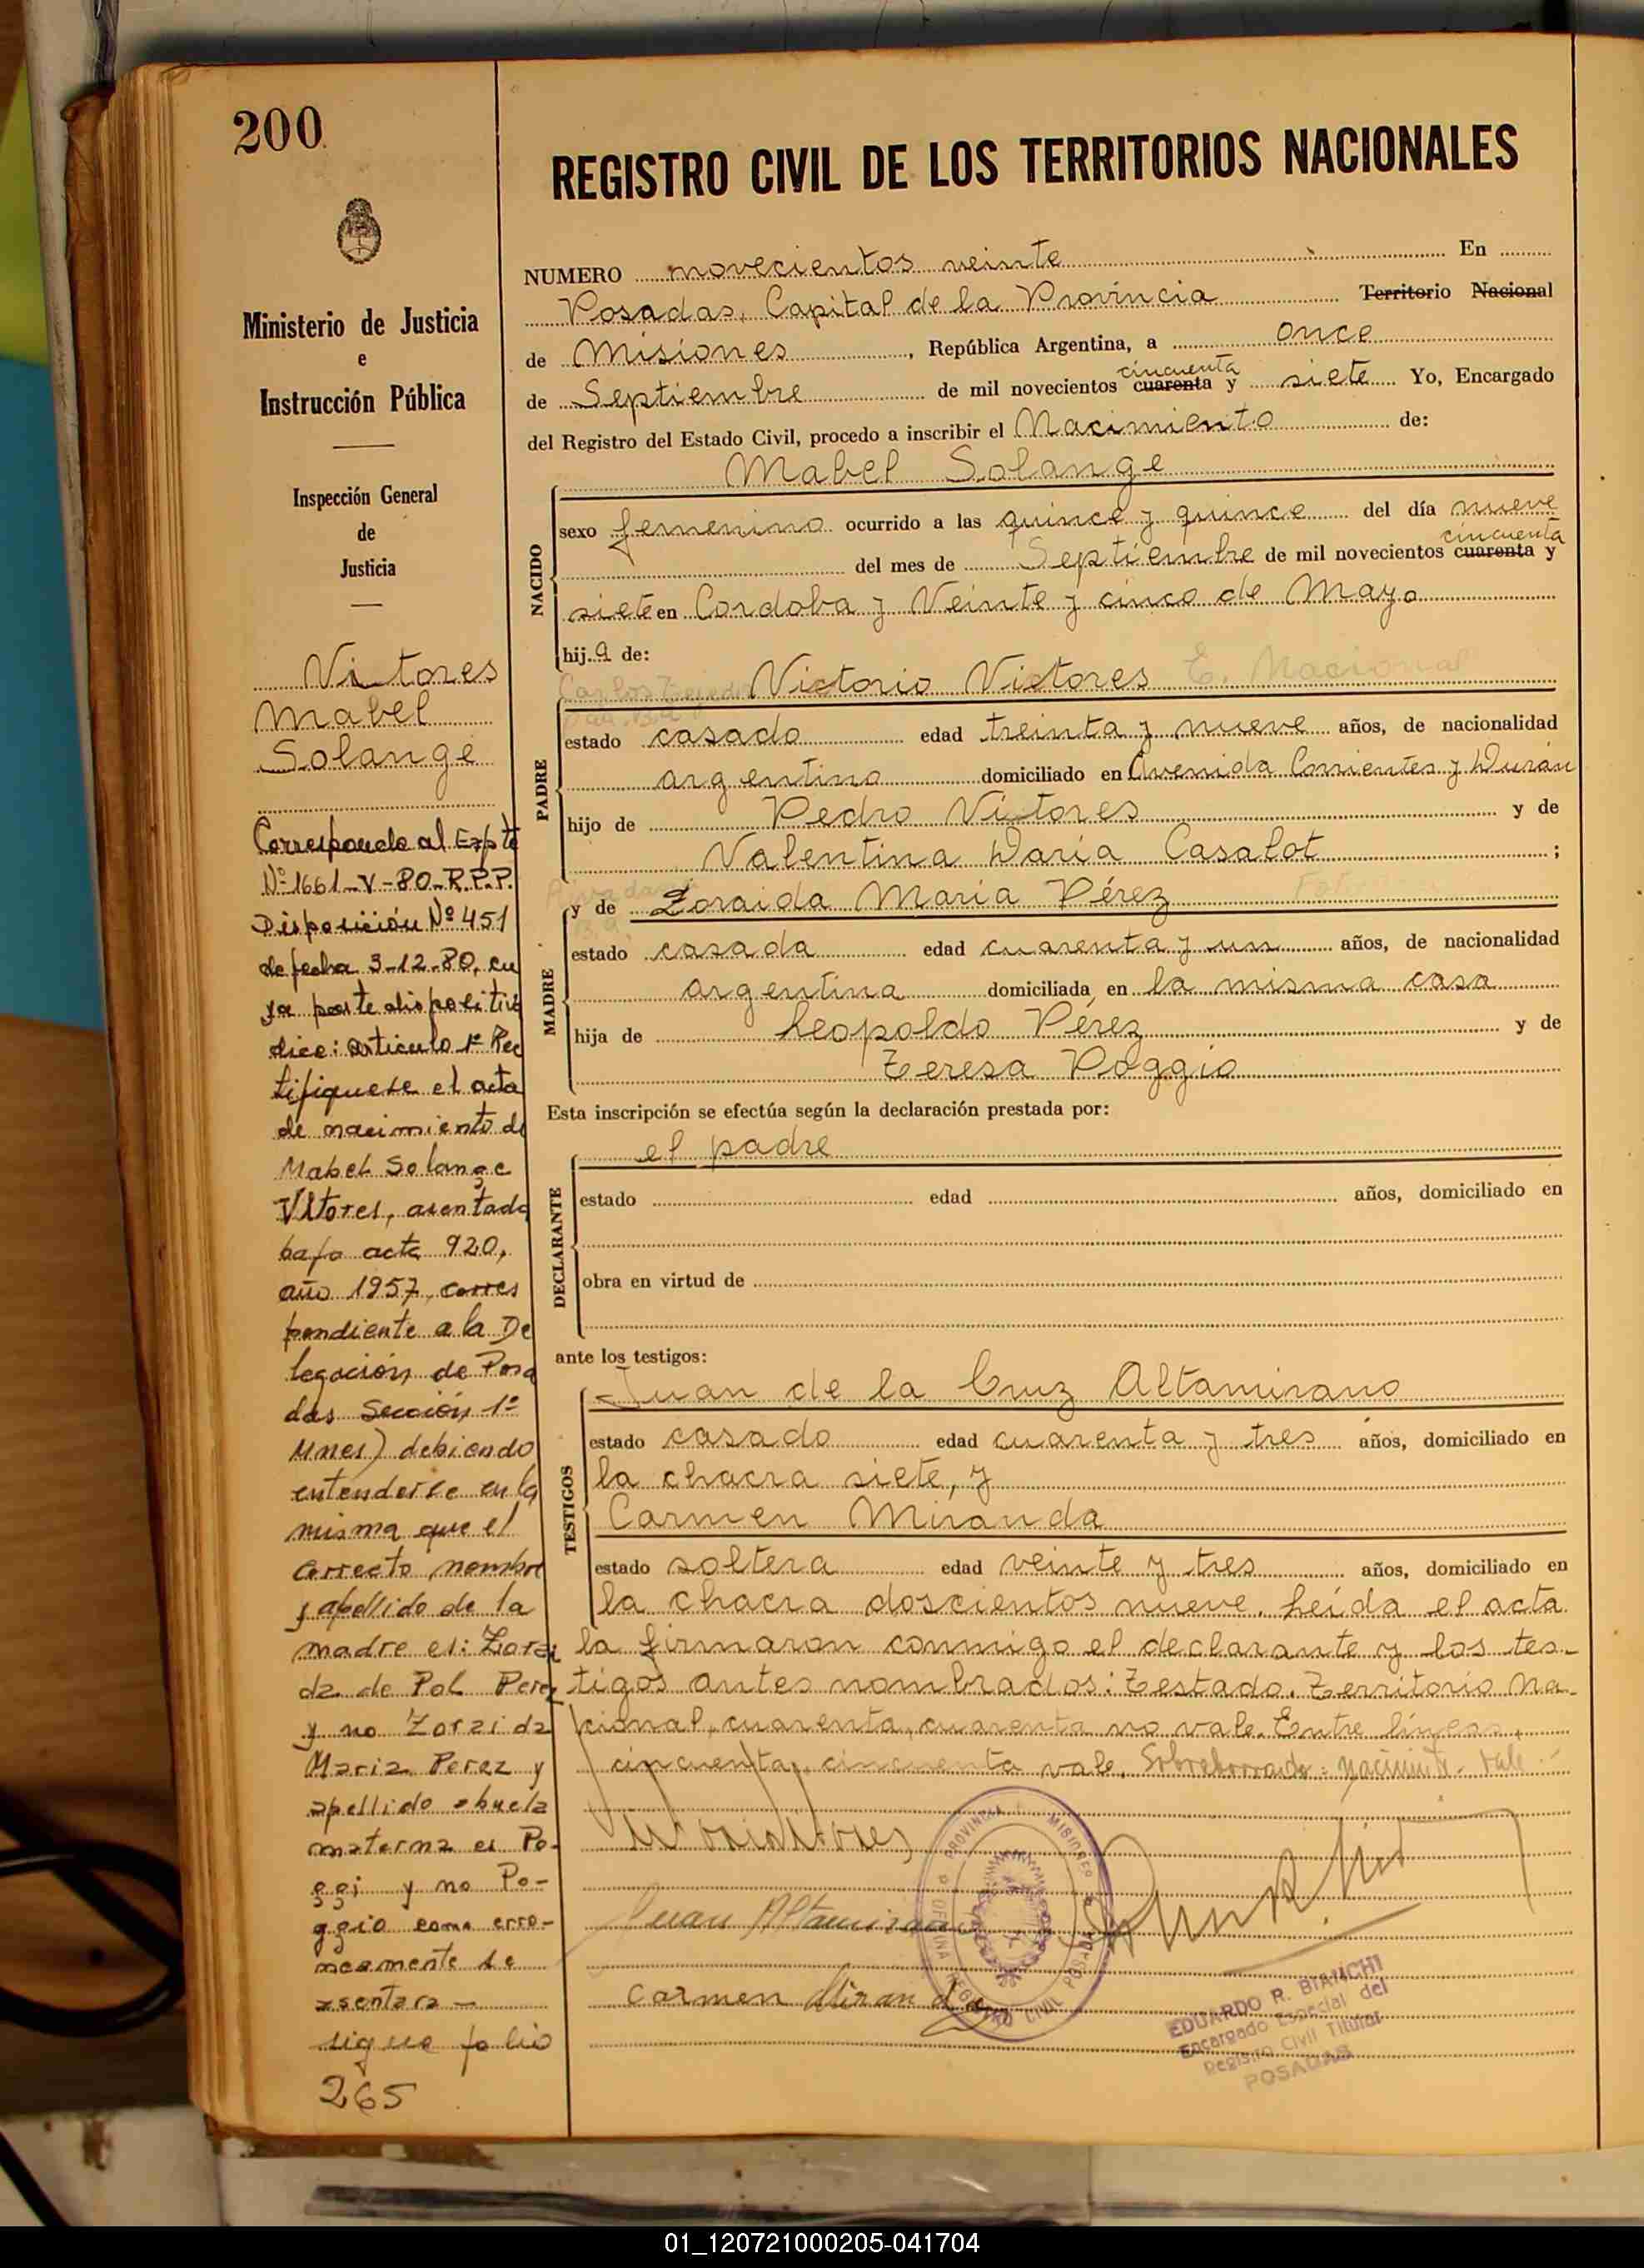 200
Ministerio de Justicia
e
Instrucción Pública
Inspección General
de
Justicia
Vitores
Mabel
Solange
Corresponde al Expte
Nº 1661-V-80-R.P.P.
Disposición Nº 451
de fecha 3-12-80, cu
ya parte dispositiva
dice: Artículo 1º Rec
tifiquese el acta
de nacimiento de
Mabel Solange
Vitores, asentada
bajo acta 920,
año 1957, corres
pondiente a la De
legación de Posa
das Sección 1º
Mnes) debiendo
entenderse en la
misma que el
correcto nombre
y apellido de la
madre es: Zorai
da de Pol Perez
y no Zoraida
Maria Perez y
apellido abuela
materna es Po-
ggi y no Po-
ggio como erro-
neamente se
asentara -
sigue folio
265
REGISTRO CIVIL DE LOS TERRITORIOS NACIONALES
NUMERO novecientos veinte En
Posadas, Capital de la Provincia Territorio Nacional
de Misiones, República Argentina, a once
cincuenta
de Septiembre de mil novecientos cuarenta y siete Yo, Encargado
del Registro del Estado Civil, procedo a inscribir el Nacimiento de:
Mabel Solange
NACIDO
sexo femenino ocurrido a las quince y quince del día nueve
cincuenta
del mes de Septiembre de mil novecientos cuarenta y
siete en Cordoba y Veinte y cinco de Mayo
hija de:
Carlos Victorio Vitores E. Nacional
PADRE
estado casado edad treinta y nueve años, de nacionalidad
argentino domiciliado en Avenida Corrientes y Durán
hijo de Pedro Vitores y de
Valentina Daría Casalot ;
y de Zoraida María Pérez
MADRE
estado casada edad cuarenta y un años, de nacionalidad
argentina domiciliada en la misma casa
hija de Leopoldo Pérez y de
Teresa Poggio
Esta inscripción se efectúa según la declaración prestada por:
el padre
DECLARANTE
estado edad años, domiciliado en
obra en virtud de
ante los testigos:
Juan de la Cruz Altamirano
TESTIGOS
estado casado edad cuarenta y tres años, domiciliado en
la chacra siete, y
Carmen Miranda
estado soltera edad veinte y tres años, domiciliado en
la chacra doscientos nueve. Leída el acta
la firmaron conmigo el declarante y los tes-
tigos antes nombrados: Testado. Territorio Na-
cional, cuarenta, cuarenta no vale. Entre líneas,
cincuenta, cincuenta vale. Sobreborrado: Nacimiento - vale
Juan Altamirano
Carmen Miranda
PROVINCIA MISIONES
OFICINA REGISTRO CIVIL POSADAS
EDUARDO R. BIANCHI
Encargado Especial del
Registro Civil Titular
POSADAS
01_120721000205-041704